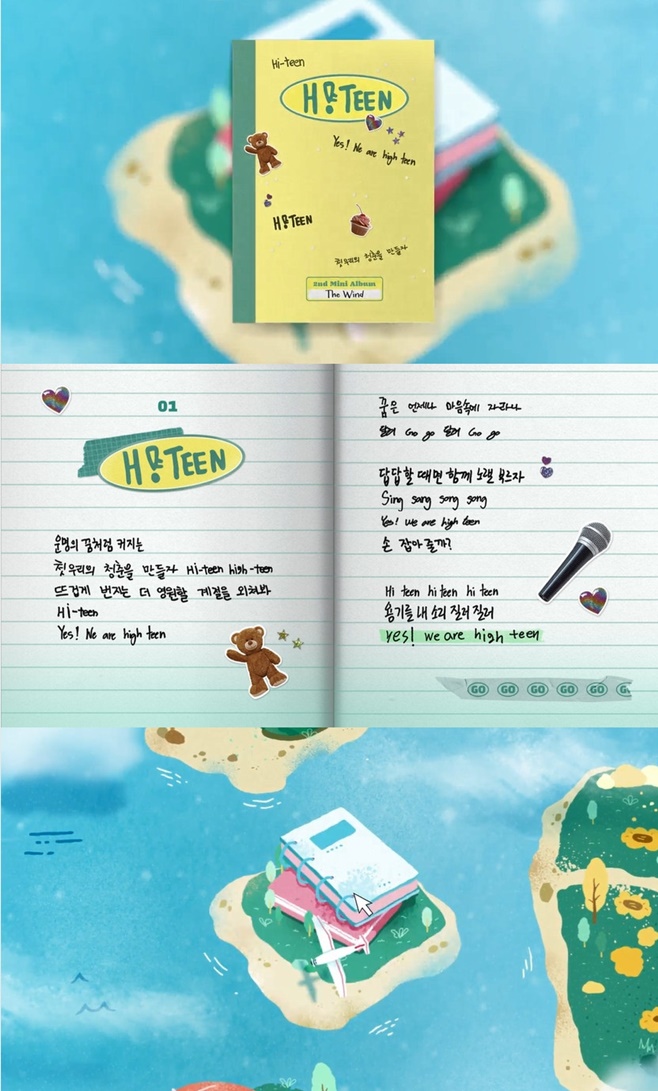 Hi-teen
H!TEEN
Yes! We are high teen
H!TEEN
첫 우리의 청춘을 만들자
2nd Mini Album
The Wind
01
H!TEEN
운명의 꿈처럼 커지는
첫 우리의 청춘을 만들자 Hi-teen high-teen
뜨겁게 번지는 더 영원할 계절을 외쳐봐
Hi-teen
Yes! We are high teen
꿈은 언제나 마음속에 자라나
Go go Go go
답답할 때면 함께 노랠 부르자
Sing sang song song
Yes! We are high teen
손 잡아줄까?
Hi teen hi teen hi teen
용기를 내 소리 질러 질러
Yes! we are high teen
GO GO GO GO GO